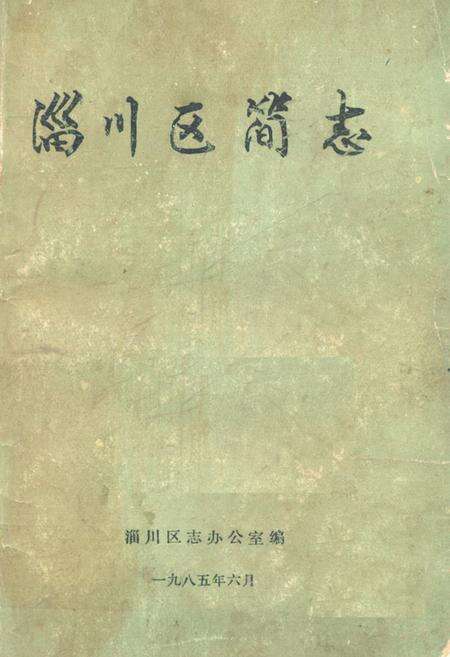 淄川区简志
淄川区志办公室编
一九八五年六月